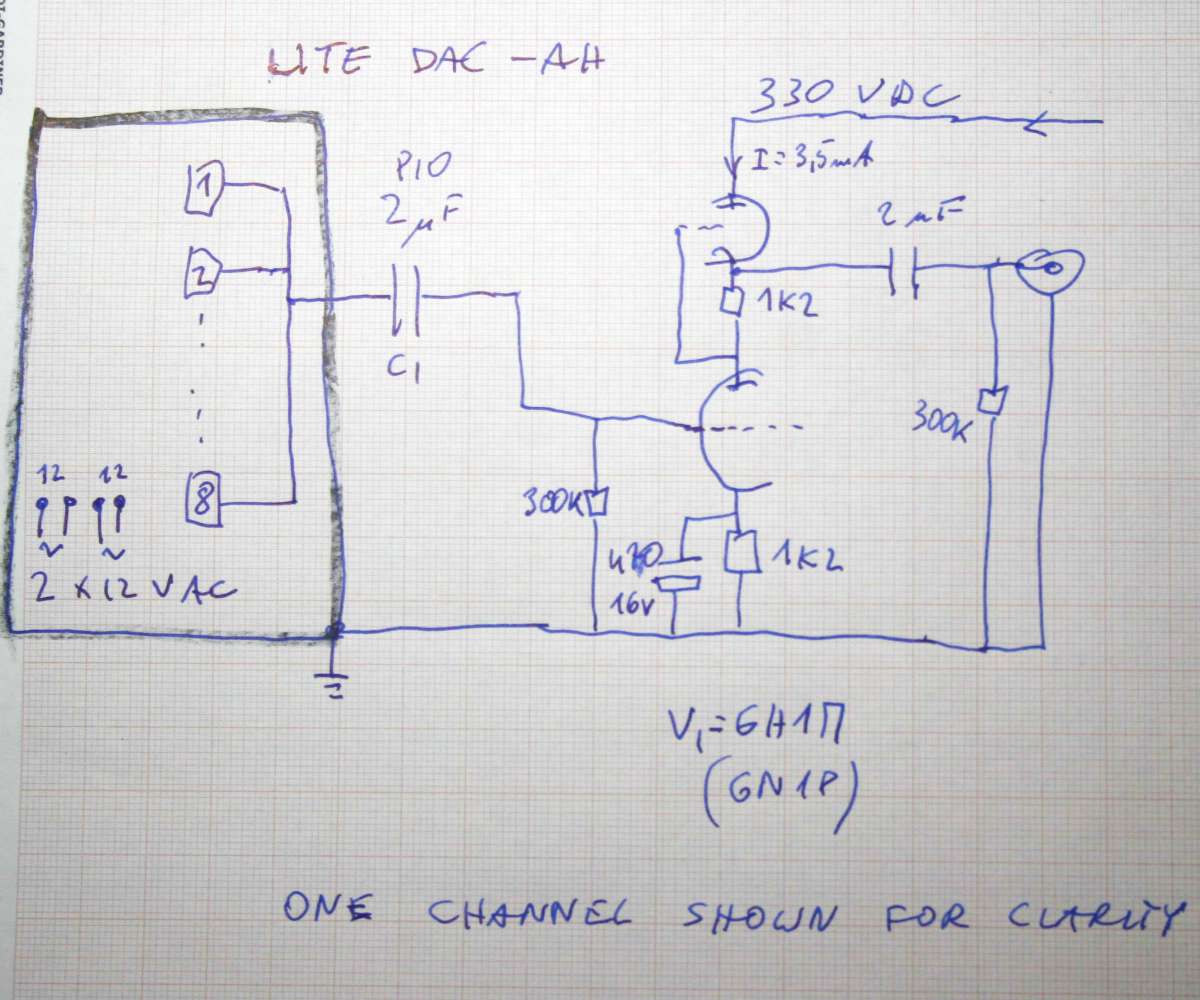 LITE DAC-AH
330 VDC
I=3,5mA
1
PIO
2µF
2µF
2
1K2
C1
300K
12 12
8
300K
470
16V
1K2
~ ~
2 x 12 VAC
V1=6Н1П
(6N1P)
ONE CHANNEL SHOWN FOR CLARITY